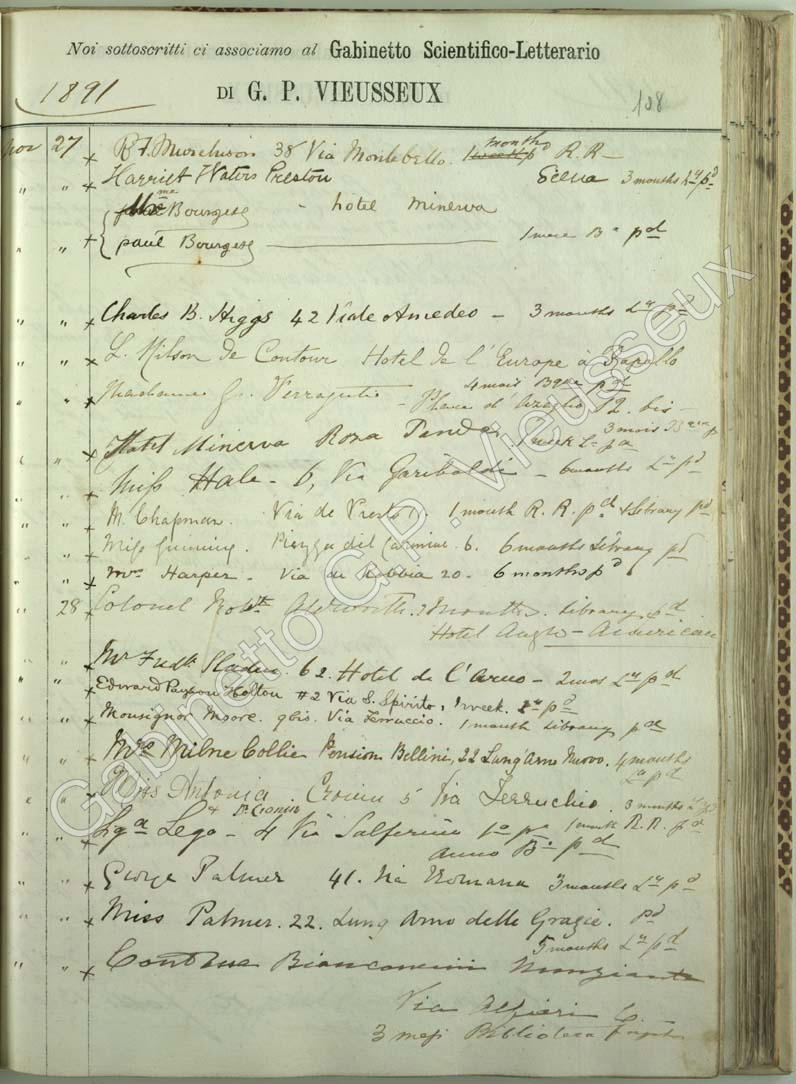 Noi sottoscritti ci associamo al Gabinetto Scientifico-Letterario
1891 DI G. P. VIEUSSEUX 108
Nov 27 x R. J. Murchison 38 Via Montebello. 1 month R. R.
" " x Harriet Waters Preston Siena 3 months Ly pd
Mme Bourget - hotel Minerva
" " + paul Bourget pd
" " x Charles B. Higgs 42 Viale Amedeo - 3 months Ly pd
" " x L. de Contour Hotel de l'Europe a
" " x Madame G. - 4 mois pd
d'Azeglio 12. bis - 3 mois
" " x Hotel Minerva Roza 1 week
" " x Miss Hale - 6, Via Garibaldi - 6 months Ly pd
" " x M. Chapman. Via de 1 month R. R. pd & Library pd
" " x Miss Piazza del Carmine 6. 6 months Library pd
" " x Mrs Harper - Via della Robbia 20 - 6 months pd
" 28 x Colonel Robt Aldworth. months. Library pd
Hotel Anglo-American
" " x Mr Fredk 62. Hotel de l'Arno - 2 mos Ly pd
" " x Edward Payson Holton #2 Via S. Spirito, 1 week. Ly pd
" " x Monsignor Moore. 9 bis. Via Ferruccio. 1 month Library pd
" " x Mrs Milne Collie Pension Bellini, 22 Lung'Arno Nuovo. 4 months
pd
" " x Miss Antonia Cronin 5 Via Ferruchio. 3 months
& Dr. Cronin
" " x Sga Lega - 4 Via Solferino 1 month R. R. pd
anno pd
" " x George Palmer 41. Via Romana 3 months Ly pd
" " x Miss Palmer. 22. Lung Arno delle Grazie. pd
5 months Ly pd
" " x Contessa Nunziante
Via Alfieri 6. -
3 mesi Biblioteca
Gabinetto G.P. Vieusseux